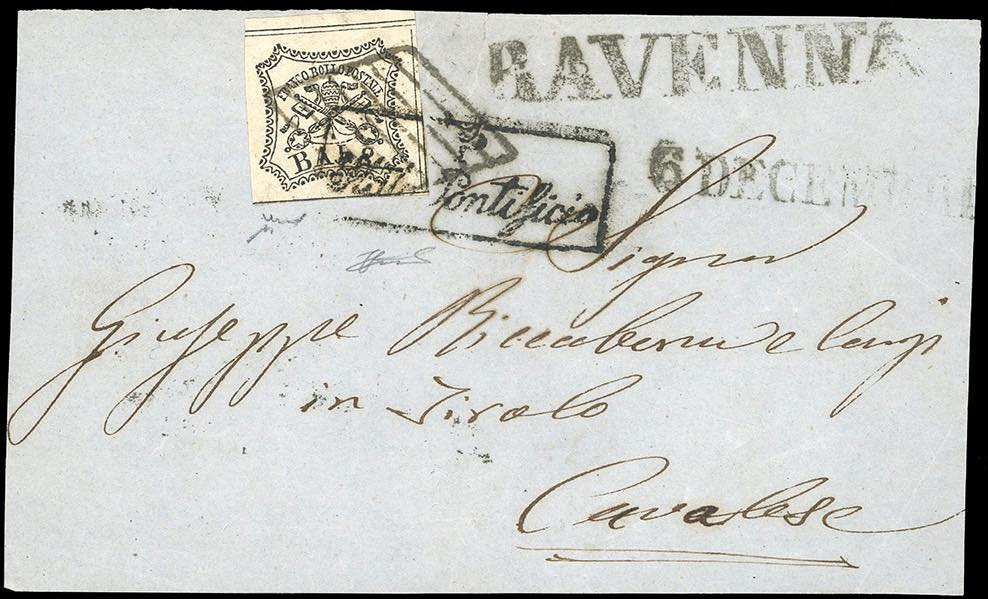 FRANCO BOLLO POSTALE
BAJ 8
RAVENNA
6 DECEMBRE
Pontificio
Signor
Giuseppe
in Tirolo
Cavalese